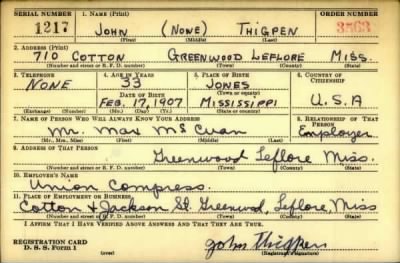 SERIAL NUMBER 1. NAME (Print) ORDER NUMBER
1217 JOHN (NONE) THIGPEN 3563
(First) (Middle) (Last)
2. ADDRESS (Print)
710 COTTON GREENWOOD LEFLORE MISS.
(Number and street or R. F. D. number) (Town) (County) (State)
3. TELEPHONE 4. AGE IN YEARS 5. PLACE OF BIRTH 6. COUNTRY OF CITIZENSHIP
NONE 33 JONES
DATE OF BIRTH (Town or county)
FEB. 17, 1907 MISSISSIPPI U.S.A
(Exchange) (Number) (Mo.) (Day) (Yr.) (State or country)
7. NAME OF PERSON WHO WILL ALWAYS KNOW YOUR ADDRESS 8. RELATIONSHIP OF THAT PERSON
Mr. Max Employer
(Mr., Mrs., Miss) (First) (Middle) (Last)
9. ADDRESS OF THAT PERSON
Greenwood Leflore Miss.
(Number and street or R. F. D. number) (Town) (County) (State)
10. EMPLOYER'S NAME
Union Compress.
11. PLACE OF EMPLOYMENT OR BUSINESS
Cotton & Jackson St. Greenwood, Leflore, Miss
(Number and street or R. F. D. number) (Town) (County) (State)
I AFFIRM THAT I HAVE VERIFIED ABOVE ANSWERS AND THAT THEY ARE TRUE.
REGISTRATION CARD
D. S. S. Form 1 John Thigpen
(Registrant's signature)